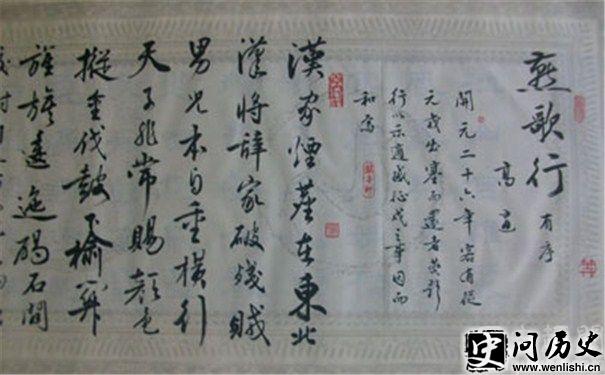 燕歌行 有序
高適
開元二十六年客有從
元戎出塞而還者
行以示適感征戍之事因而
和焉
漢家煙塵在東北
漢將辭家破殘賊
男兒本自重橫行
天子非常賜顏色
摐金伐鼓下榆關
旌旆逶迤碣石間
史 问历史
www.wenlishi.cn